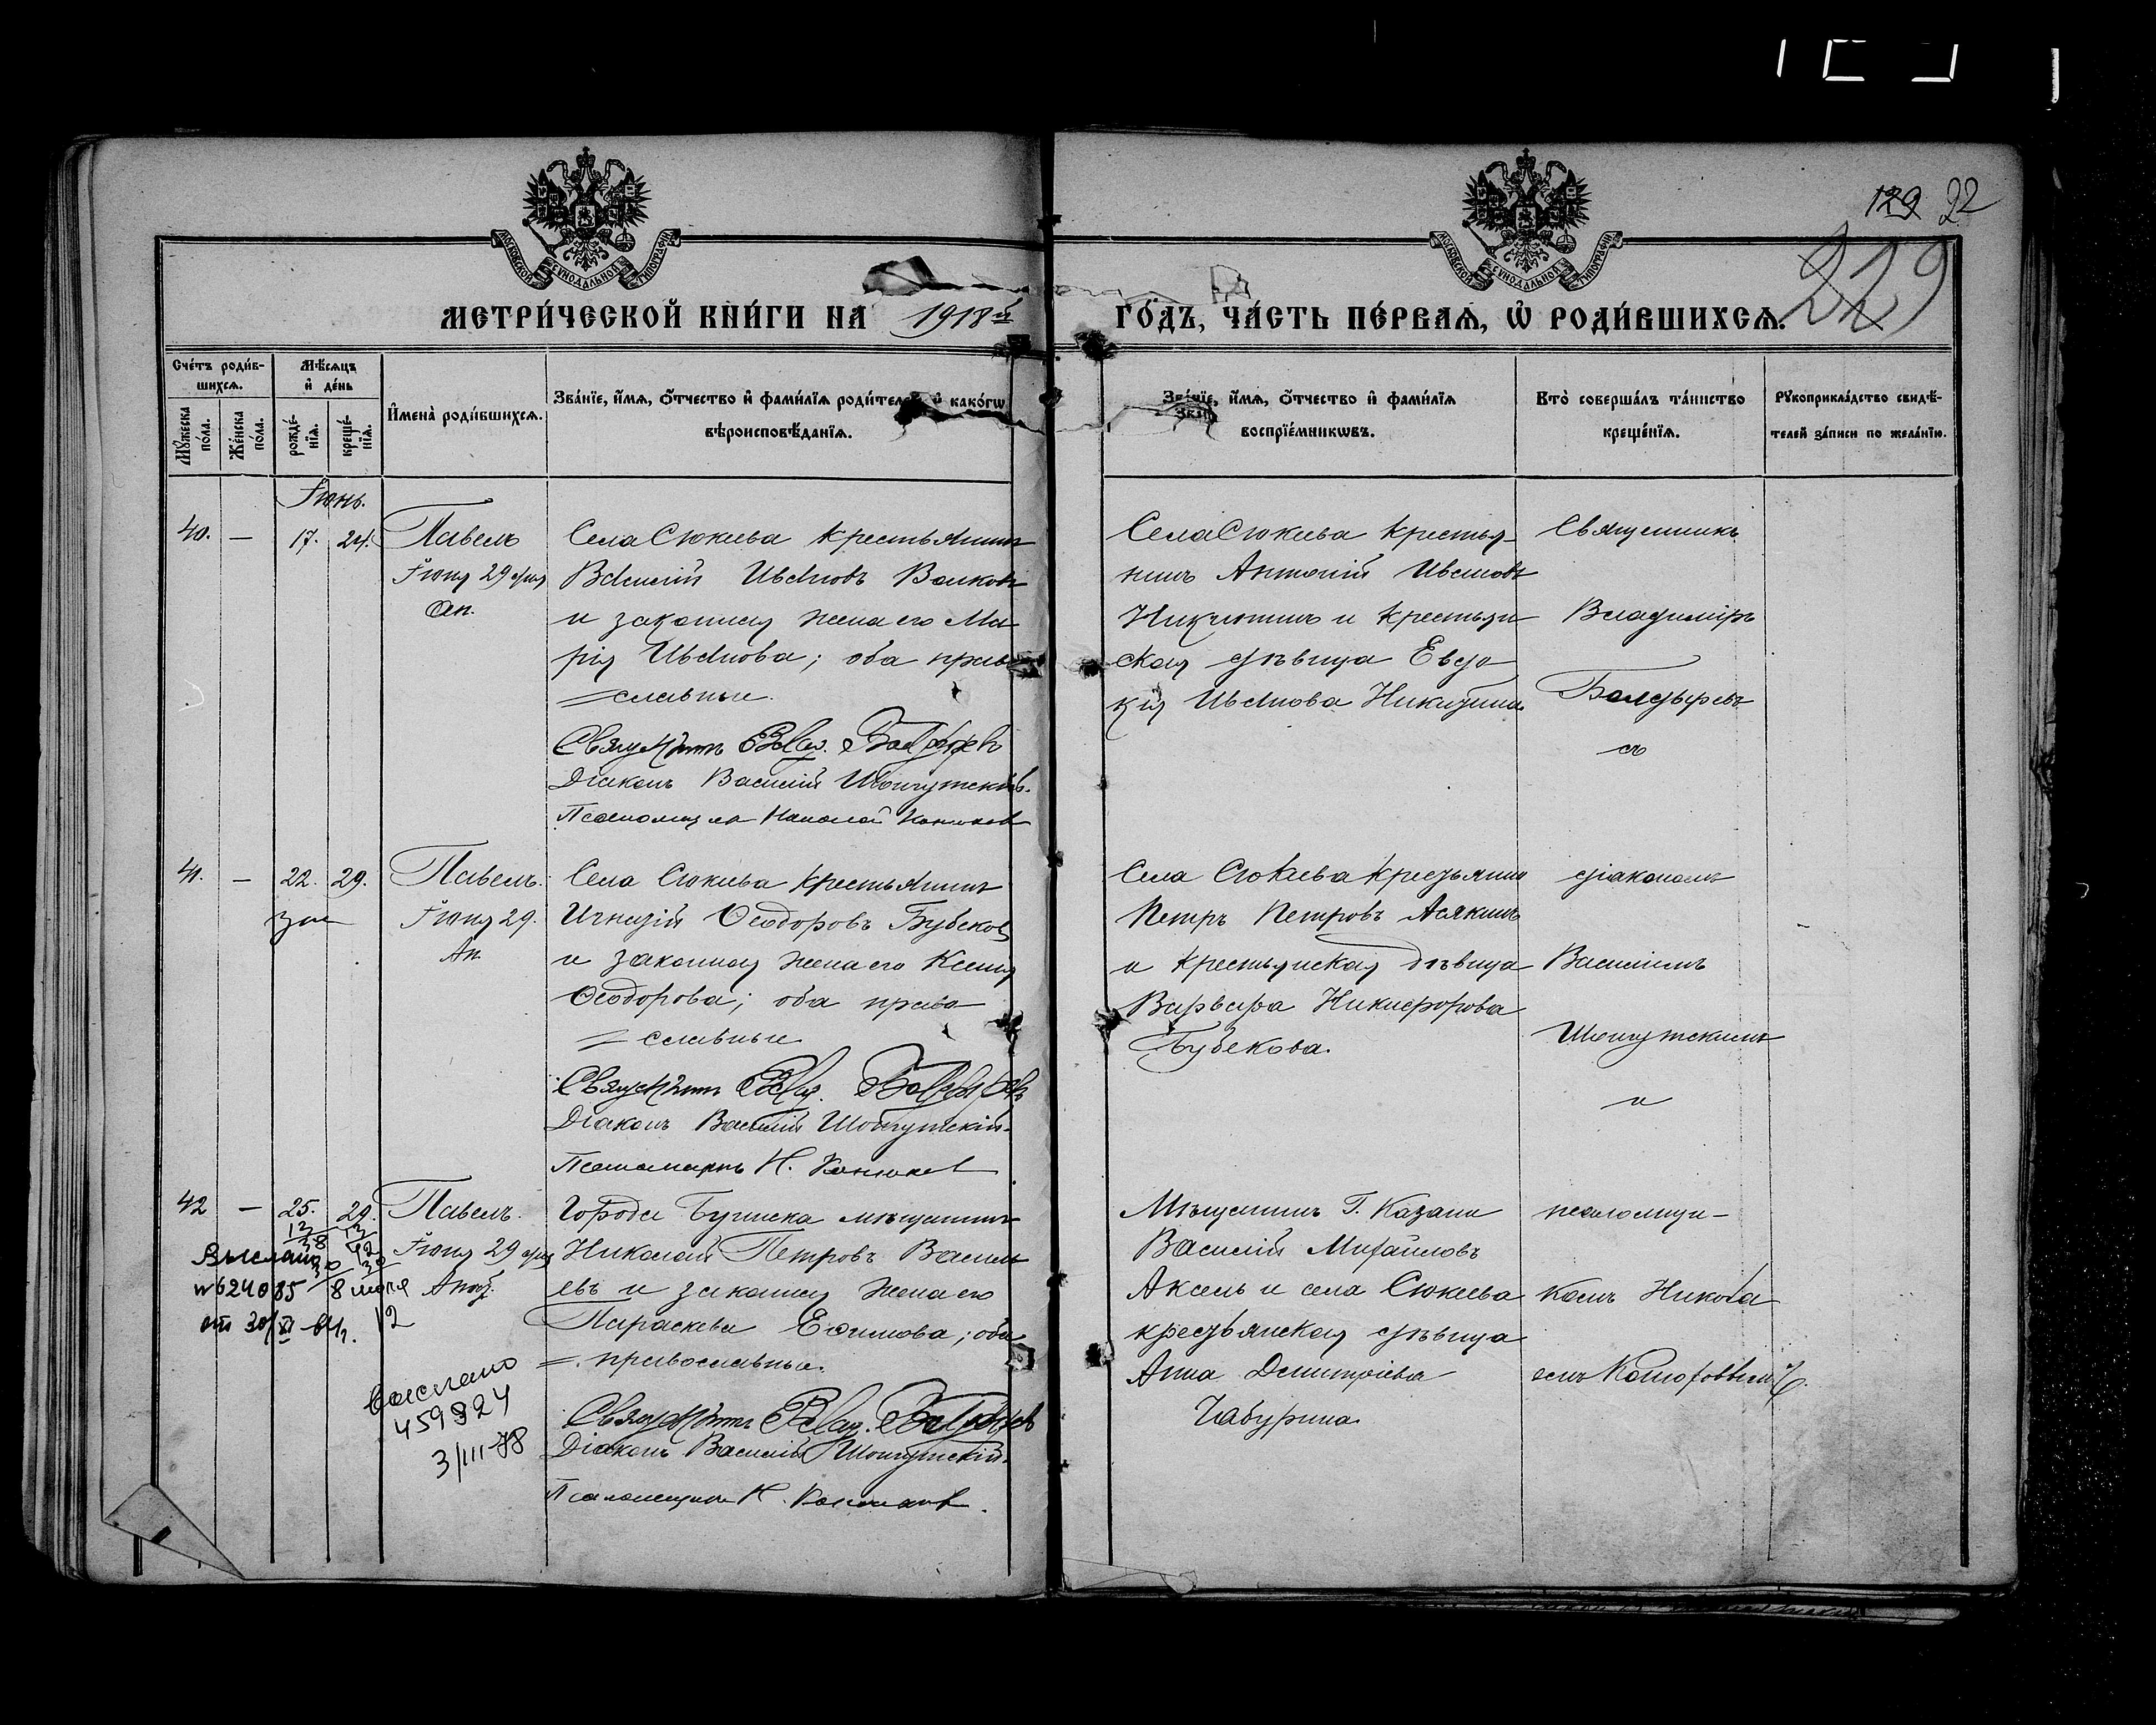 129 22
219
МОСКОВСКОЙ СѴНОДАЛЬНОЙ ТИПОГРАФІИ
МОСКОВСКОЙ СѴНОДАЛЬНОЙ ТИПОГРАФІИ
МЕТРИ́ЧЕСКОЙ КНИ́ГИ НА 1918й ГО́ДЪ, ЧА́СТЬ ПЕ́РВАѦ, Ѡ҆ РОДИ́ВШИХСѦ.
Сче́тъ роди́в-
шихсѧ.
Мꙋ́жеска по́ла.
Же́нска по́ла.
Мѣ́сѧцъ
и҆ де́нь
рожде́-
нїѧ.
креще́-
нїѧ.
И҆мена̀ роди́вшихсѧ.
Зва́нїе, и҆́мѧ, ѻ҆́тчество и҆ фами́лїѧ роди́телей и҆ како́гѡ
вѣроисповѣ́данїѧ.
Зва́нїе, и҆́мѧ, ѻ҆́тчество и҆ фами́лїѧ
воспрїе́мникѡвъ.
Кто̀ соверша́лъ та́инство
креще́нїѧ.
Рꙋкоприкла́дство свидѣ́-
телей за́писи по жела́нїю.
Іюнь.
40. — 17. 24.
Павелъ
Іюня 29 дня
Ап.
Села Сюкеева крестьянинъ
Василій Ивановъ Волковъ
и законная жена его Ма
рія Иванова; оба право
=славные.
Священникъ Влад. Болдырев
Діаконъ Василій Шонгутскій.
Псаломщик Николай
Села Сюкеева крестья-
нинъ Антоній Ивановъ
Никитинъ и крестьян
ская дѣвица Евдо
кія Иванова Никитина.
Священникъ
Владиміръ
Болдыревъ
съ
41. — 22. 29.
Павелъ.
Іюня 29.
Ап.
Села Сюкеева крестьянинъ
Игнатій Ѳеодоровъ Бубековъ
и законная жена его Ксенія
Ѳеодорова; оба право
=славные
Священникъ Влад. Болдырев
Діаконъ Василій Шонгутскій.
Псаломщикъ Н.
Села Сюкеева крестьянинъ
Петръ Петровъ Асякинъ
и крестьянская дѣвица
Варвара Никифорова
Бубекова.
діакономъ
Василіемъ
Шонгутскимъ
и
42 — 25. 29.
Павелъ.
Іюня 29 дня
Выслано
№ 624085
8 июля
12
от 30/XI-64г.
выслано
459824
3/III-78
Города Буинска мѣщанинъ
Николай Петровъ Василь
евъ и законная жена его
Параскева Ефимова; оба
=православные.
Священникъ Влад. Болдырев
Діаконъ Василій Шонгутскій.
Псаломщикъ Н.
Мѣщанинъ Г. Казани
Василій Михайловъ
и села Сюкеева
крестьянская дѣвица
Анна Димитріева
Чабурина
псаломщи-
комъ Никола
емъ